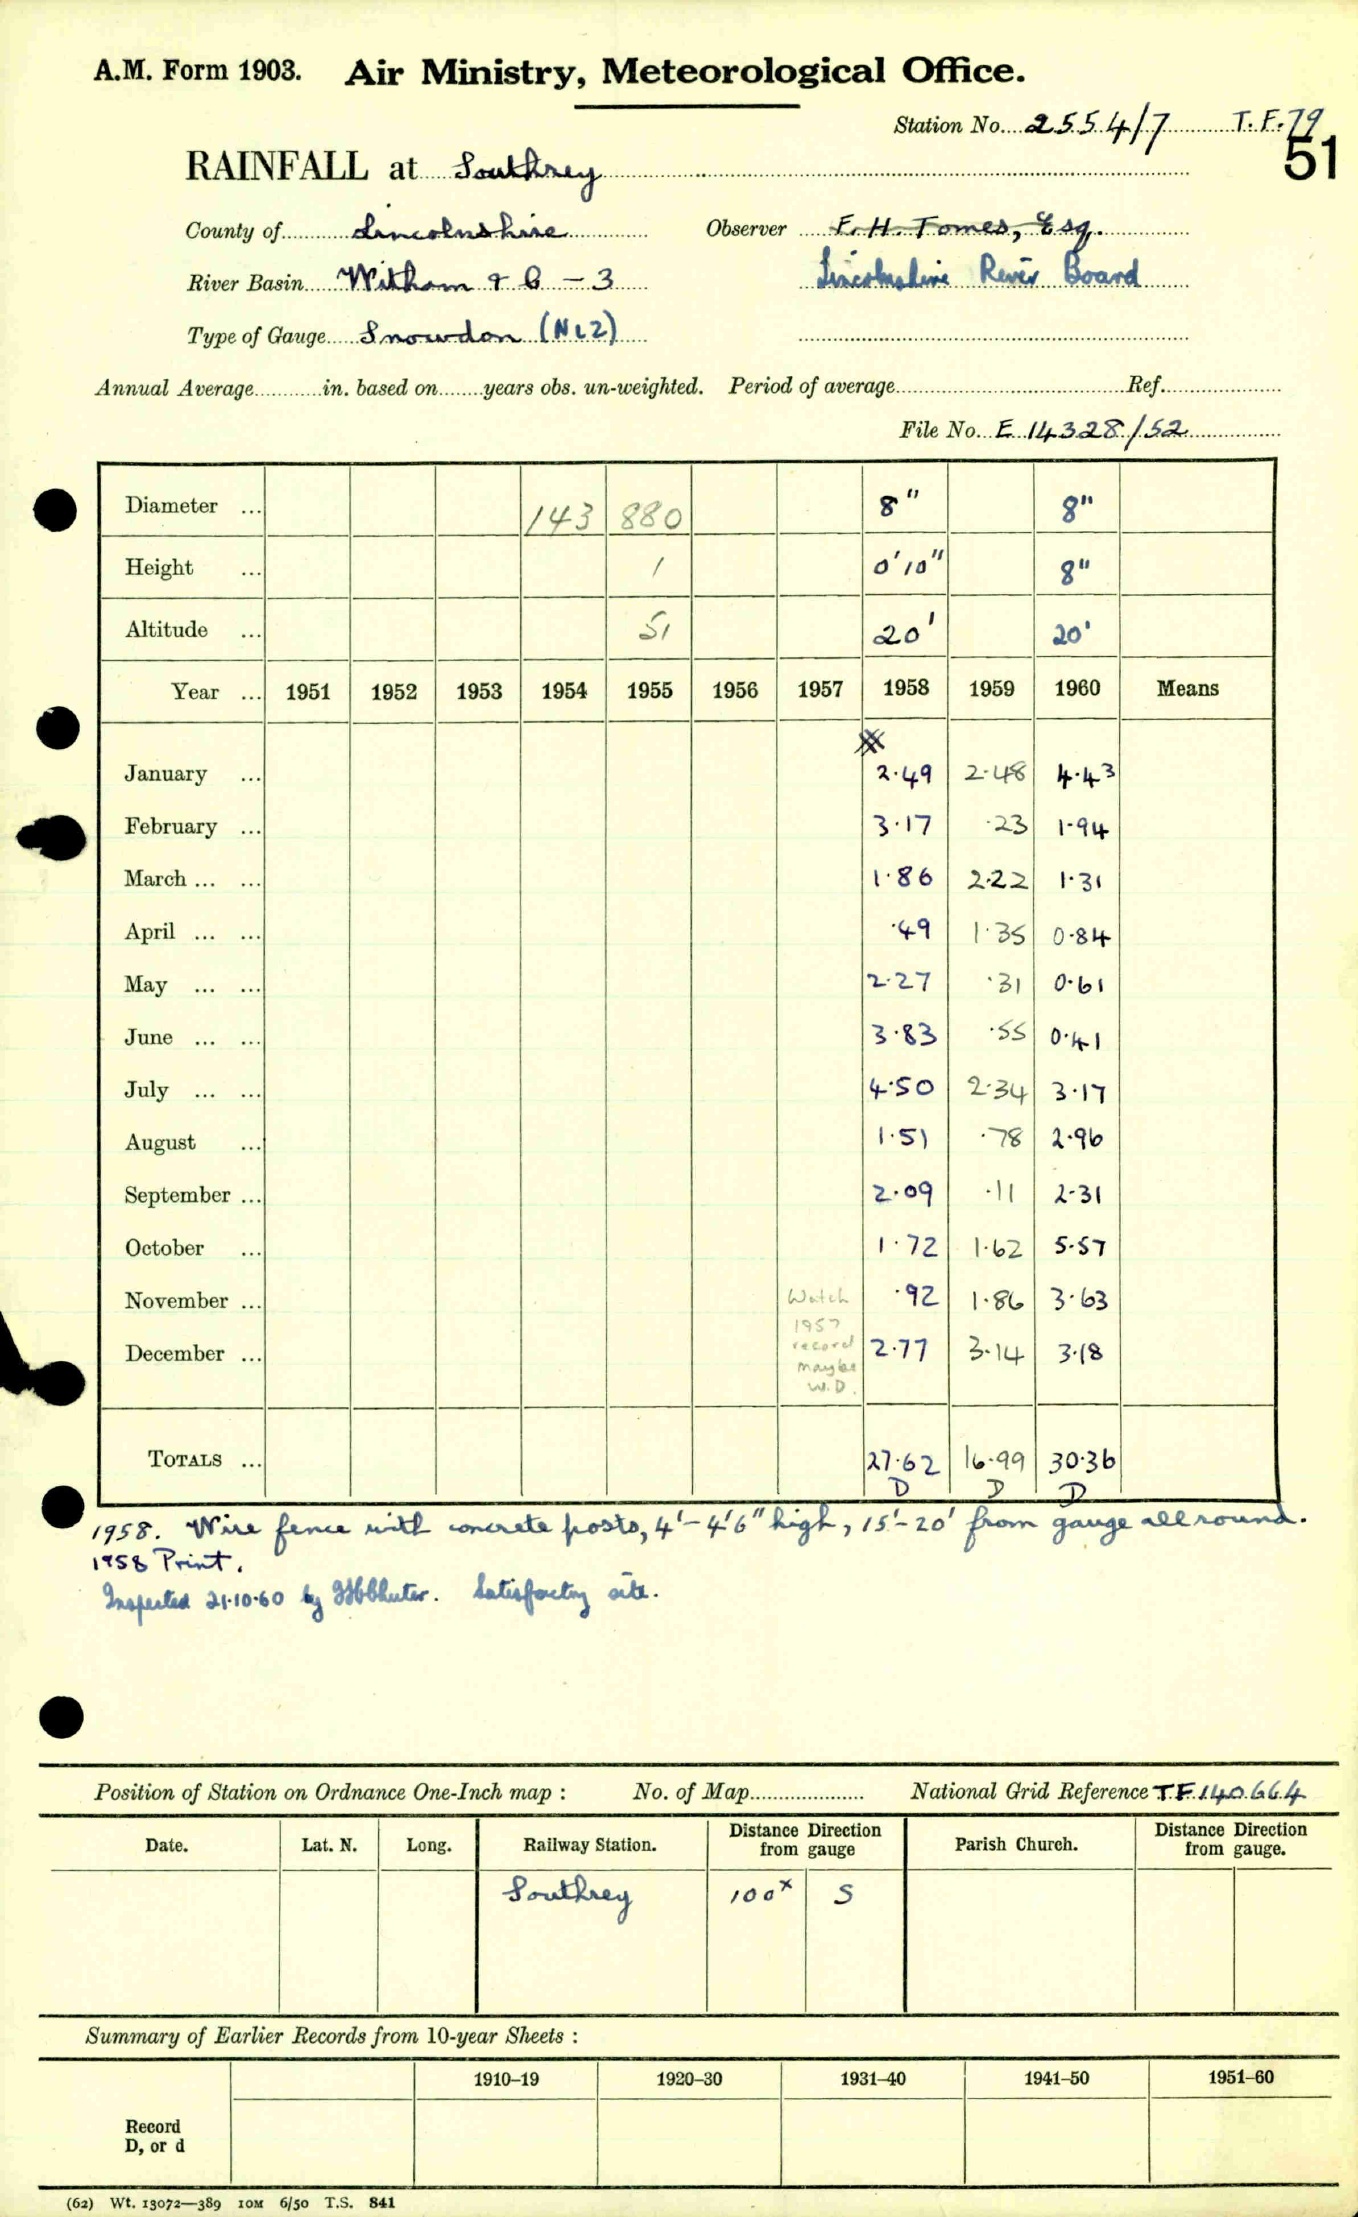 A.M. Form 1903. Air Ministry, Meteorological Office.
Station No. 2554/7 T.F.79
51
RAINFALL at Southrey
County of Lincolnshire Observer F. H. Tomes, Esq.
River Basin Witham & C – 3 Lincolnshire River Board
Type of Gauge Snowdon
Annual Average in. based on years obs. un-weighted. Period of average Ref.
File No. E 14328/52
Diameter ... 143 880 8" 8"
Height ... 1 0'10" 8"
Altitude ... 51 20' 20'
Year ... 1951 1952 1953 1954 1955 1956 1957 1958 1959 1960 Means
January ... 2·49 2·48 4·43
February ... 3·17 ·23 1·94
March ... ... 1·86 2·22 1·31
April ... ... ·49 1·35 0·84
May ... ... 2·27 ·31 0·61
June ... ... 3·83 ·55 0·41
July ... ... 4·50 2·34 3·17
August ... 1·51 ·78 2·96
September ... 2·09 ·11 2·31
October ... 1·72 1·62 5·57
November ... ·92 1·86 3·63
December ... 2·77 3·14 3·18
Watch
1957
record
maybe
W.D.
TOTALS ... 27·62 16·99 30·36
D D D
1958. Wire fence with concrete posts, 4'–4'6" high, 15'–20' from gauge all round.
1958 Print.
Inspected 21·10·60 by Satisfactory site.
Position of Station on Ordnance One-Inch map : No. of Map National Grid Reference TF 140664
Date. Lat. N. Long. Railway Station. Distance from Direction gauge Parish Church. Distance from Direction gauge.
Southrey 100ˣ S
Summary of Earlier Records from 10-year Sheets :
1910–19 1920–30 1931–40 1941–50 1951–60
Record
D, or d
(62) Wt. 13072—389 10M 6/50 T.S. 841